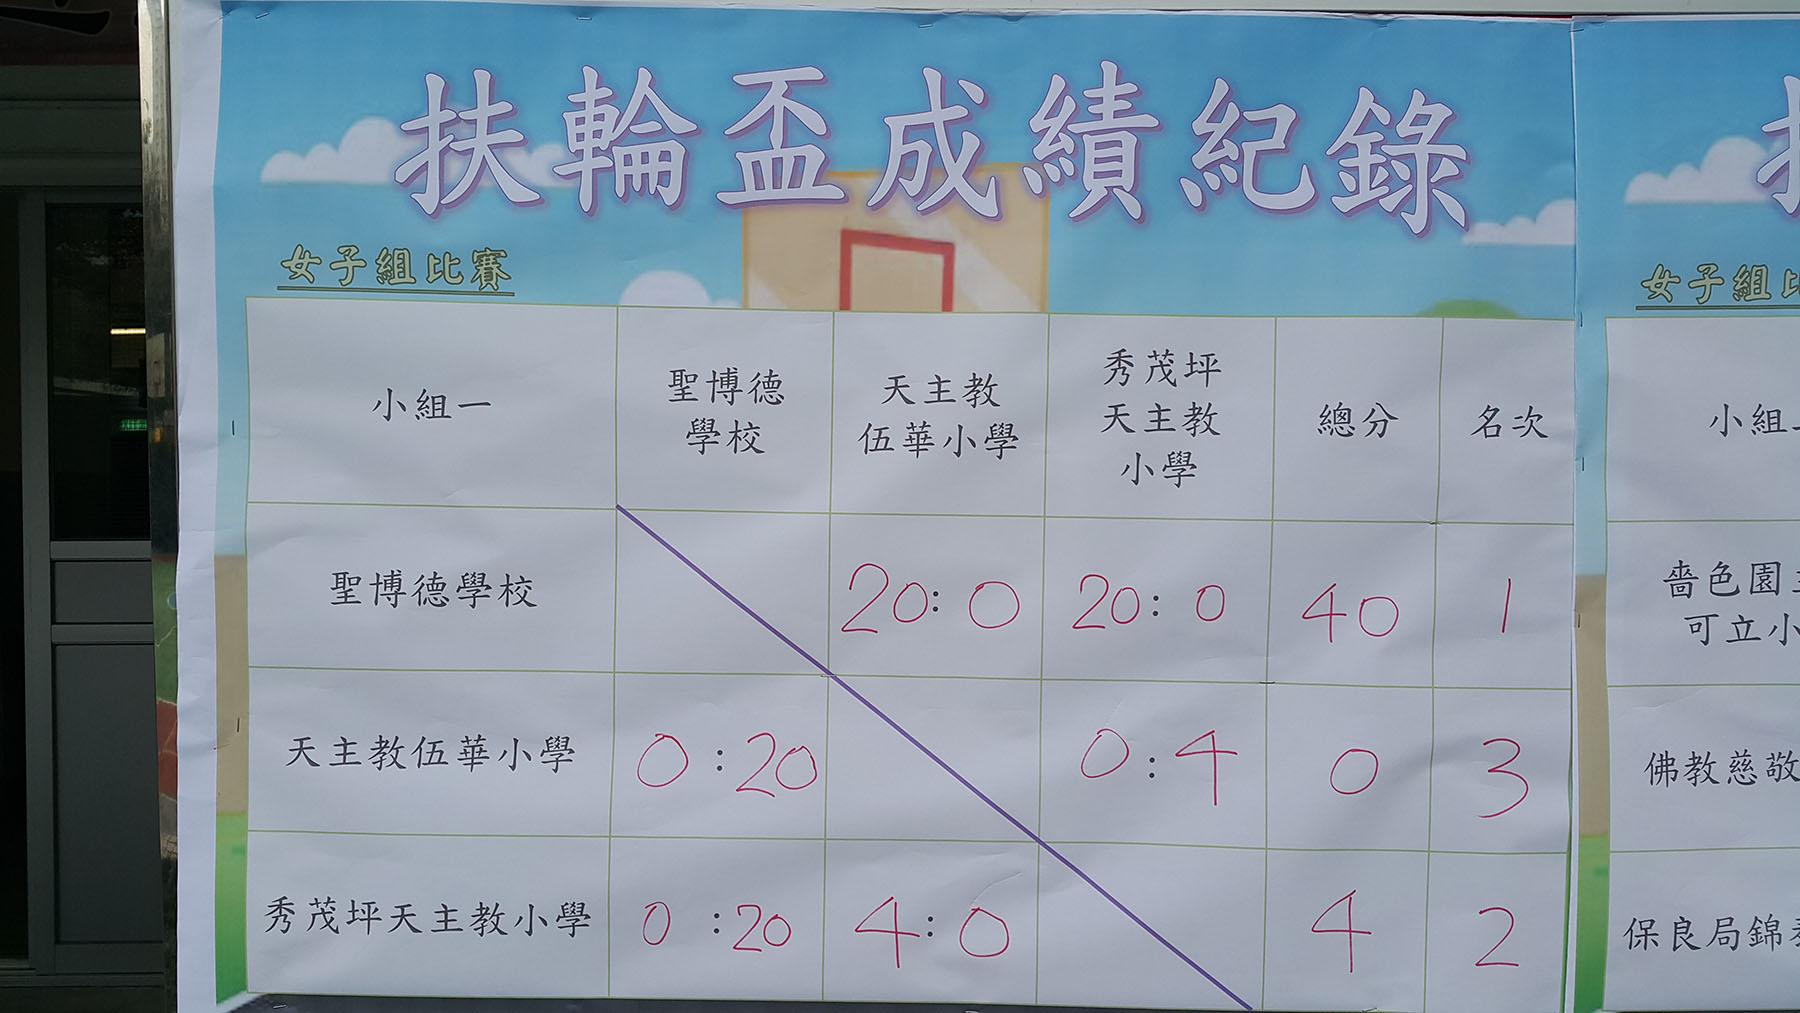 扶輪盃成績紀錄
女子組比賽
小組一
聖博德
學校
天主教
伍華小學
秀茂坪
天主教
小學
總分
名次
聖博德學校
20:0
20:0
40
1
天主教伍華小學
0:20
0:4
0
3
秀茂坪天主教小學
0:20
4:0
4
2
女子組比
小組
嗇色園
可立小
佛教慈敬
保良局錦